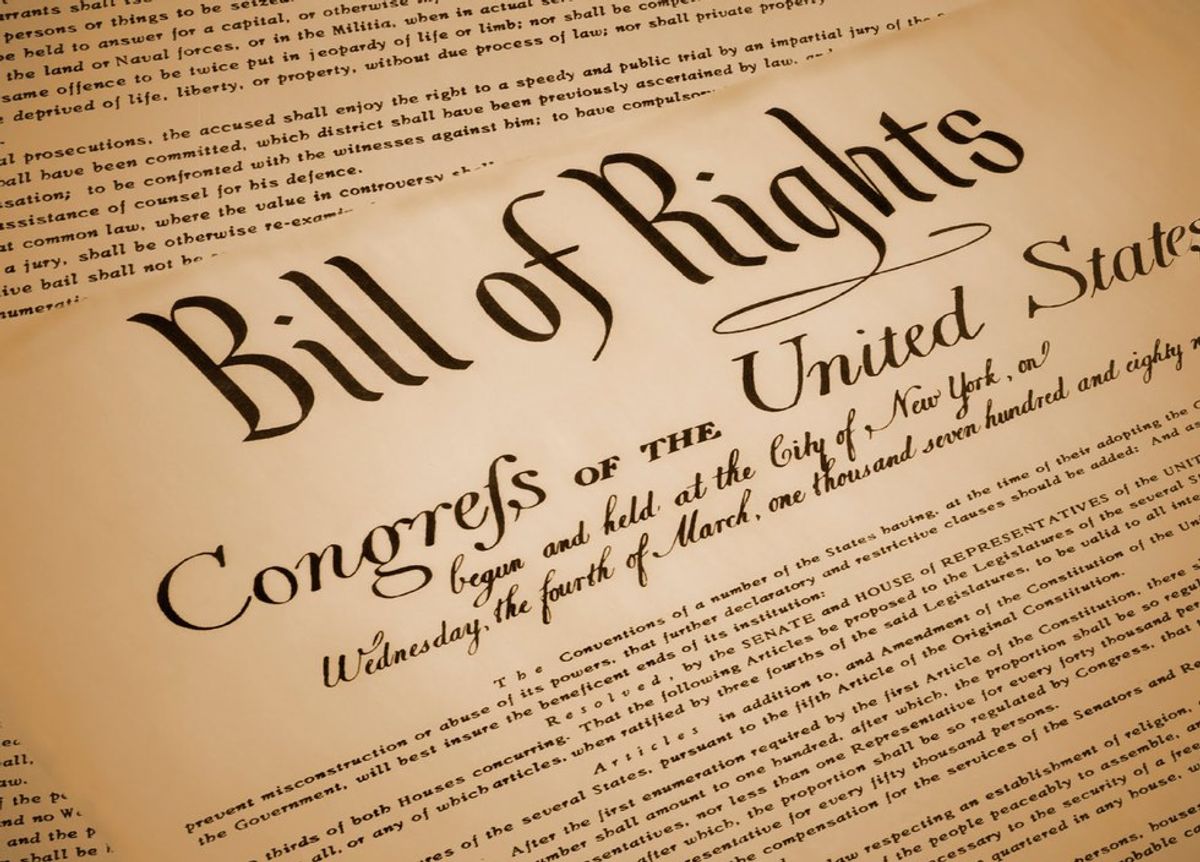 rrants shall iss
persons or things to be seized.
be held to answer for a capital, or otherwise
the land or Naval forces, or in the Militia, when in actual
same offence to be twice put in jeopardy of life or limb; nor shall be
deprived of life, liberty, or property, without due process of law; nor shall private property
al prosecutions, the accused shall enjoy the right to a speedy and public trial by an impartial jury of the
hall have been committed, which district shall have been previously ascertained by law,
sation; to be confronted with the witnesses against him; to have compulsor
assistance of counsel for his defence.
at common law, where the value in controversy
a jury, shall be otherwise re-exami
ive bail shall not be
numerati
Bill of Rights
Congreſs OF THE United States
begun and held at the City of New York, on
Wednesday, the fourth of March, one thousand seven hundred and eighty
The Conventions of a number of the States having, at the time of their adopting the
prevent misconstruction or abuse of its powers, that further declaratory and restrictive clauses should be added: And as
the Government, will best insure the beneficent ends of its institution:
Resolved, by the SENATE and HOUSE of REPRESENTATIVES of the UNIT
thirds of both Houses concurring. That the following Articles be proposed to the Legislatures of the several S
all, or any of which articles, when ratified by three fourths of the said Legislatures, to be valid to all inte
Articles in addition to, and Amendment of the Constitution of the Un
res of the several States, pursuant to the fifth Article of the Original Constitution.
After the first enumeration required by the first Article of the Constitution, there s
mber shall amount to one hundred, after which, the proportion shall be so regu
sentatives, nor less than one Representative for every forty thousand per
after which, the proportion shall be so regulated by Congress, that
resentative for every fifty thousand persons.
he compensation for the services of the Senators and Re
law respecting an establishment of religion,
of the people peaceably to assemble,
cessary to the security of a free
quartered in any house,
persons, house
all,
aw.
the p
nd no
and the p
shall be